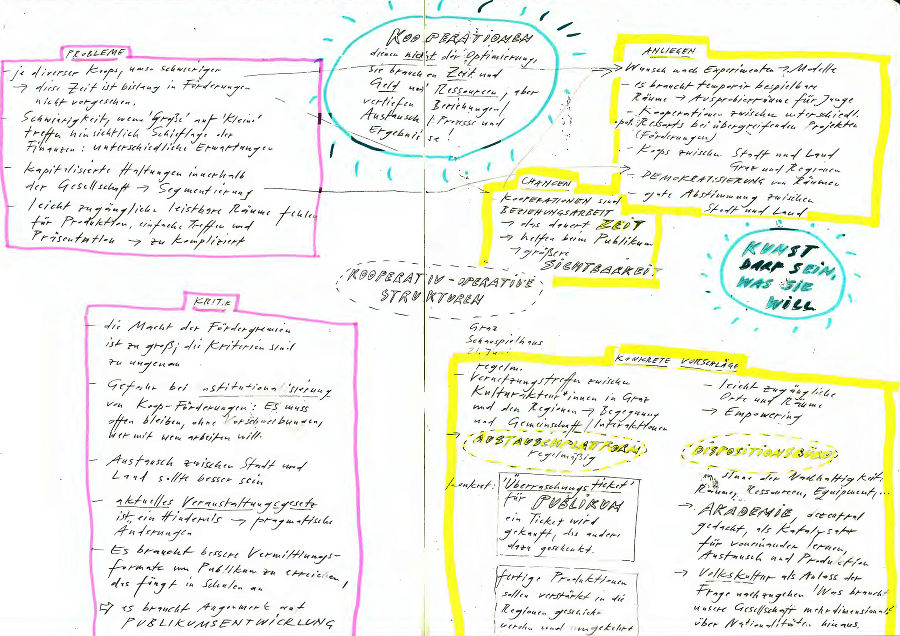 KOOPERATIONEN
dienen nicht der Optimierung,
sie brauchen Zeit und
Geld und Ressourcen, aber
vertiefen Beziehungen/
Austausch / Prozesse und
Ergebnisse!
PROBLEME
je diverser Koops, umso schwieriger
→ diese Zeit ist bislang in Förderungen
nicht vorgesehen.
- Schwierigkeit, wenn 'große' auf 'kleine'
treffen hinsichtlich Schieflage der
Finanzen: unterschiedliche Erwartungen
- Kapitalisierte Haltungen innerhalb
der Gesellschaft → Segmentierung
- leicht zugängliche leistbare Räume fehlen
für Produktion, einfache Treffen und
Präsentation → zu kompliziert
ANLIEGEN
Wunsch nach Experimenten → Modelle
- es braucht temporär bespielbare
Räume → Ausprobierräume für Junge
- Kooperationen zwischen unterschiedl.
Ressorts bei übergreifenden Projekten
(Förderungen)
- Koops zwischen Stadt und Land
Graz und Regionen
- DEMOKRATISIERUNG von Räumen
- gute Abstimmung zwischen
Stadt und Land
CHANCEN
KOOPERATIONEN sind
BEZIEHUNGSARBEIT
→ das dauert ZEIT
→ helfen beim Publikum
→ größere
SICHTBARKEIT
KUNST
DARF SEIN,
WAS SIE
WILL
KOOPERATIV-OPERATIVE
STRUKTUREN
Graz
Schauspielhaus
KRITIK
- die Macht der Fördergremien
ist zu groß; die Kriterien sind
zu ungenau
- Gefahr bei Institutionalisierung
von Koop-Förderungen: Es muss
offen bleiben, ohne Vorschreibungen,
wer mit wem arbeiten will.
- Austausch zwischen Stadt und
Land sollte besser sein
- aktuelles Veranstaltungsgesetz
ist ein Hindernis → pragmatische
Änderungen
- Es braucht bessere Vermittlungs-
formate um Publikum zu erreichen,
das fängt in Schulen an
⇨ es braucht Augenmerk auf
PUBLIKUMSENTWICKLUNG
KONKRETE VORSCHLÄGE
regelm.
- Vernetzungstreffen zwischen
Kulturakteur*innen in Graz
und den Regionen → Begegnung
und Gemeinschaft / Interaktionen
→ AUSTAUSCHPLATTFORM
regelmäßig
konkret:
'Überraschungsticket'
für PUBLIKUM
ein Ticket wird
gekauft, das andere
dazu geschenkt.
fertige Produktionen
sollen verstärkt in die
Regionen geschickt
werden und umgekehrt
- leicht zugängliche
Orte und Räume
→ Empowering
DISPOSITIONSBÜRO
im Sinne der Nachhaltigkeit:
Räume, Ressourcen, Equipment,...
→ AKADEMIE dezentral
gedacht, als Katalysator
für voneinander lernen,
Austausch und Produktion
→ Volkskultur als Anlass der
Frage nachzugehen 'Was braucht
unsere Gesellschaft mehrdimensional'
über Nationalitäten hinaus.